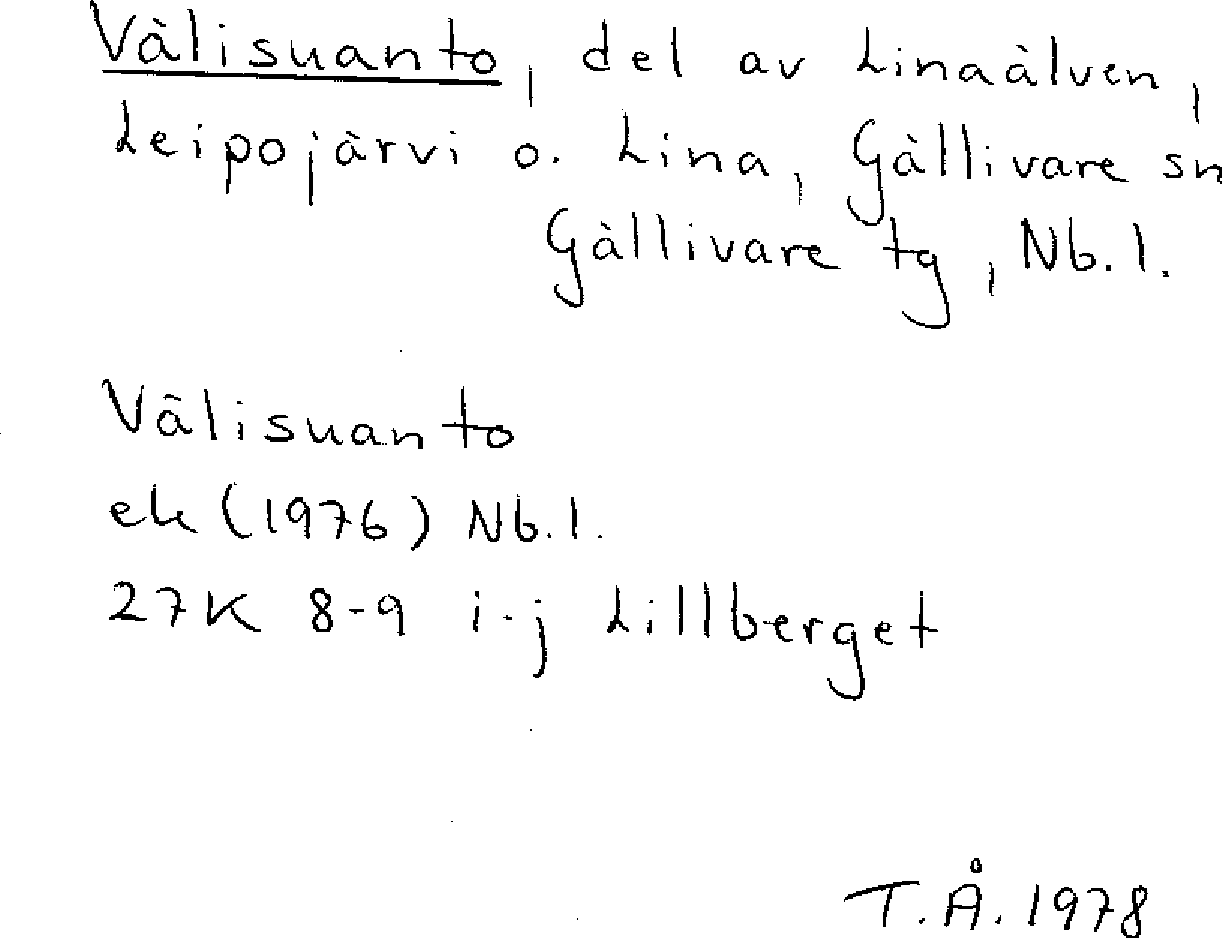 Välisuanto, del av Linaälven,
Leipojärvi o. Lina, Gällivare sn
Gällivare tg, Nb. l.
Välisuanto
ek (1976) Nb. l.
27K 8-9 i-j Lillberget
T.Å. 1978